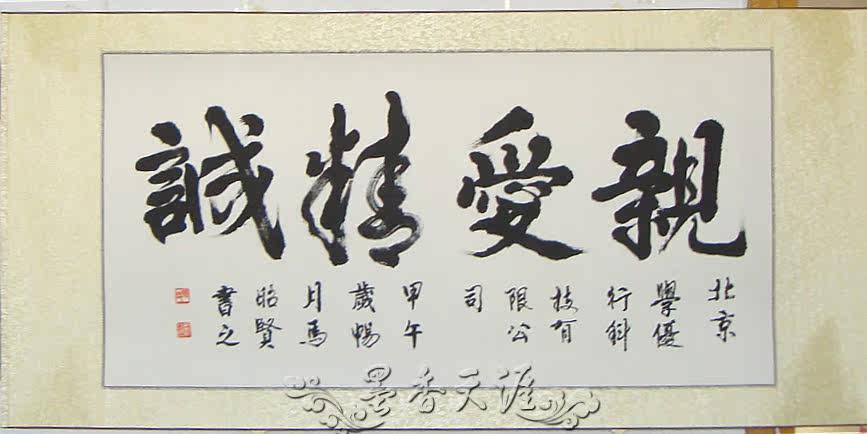 親愛精誠
北京
學優
行科
技有
限公
司
甲午
歲暢
月馬
昭賢
書之
墨香天涯